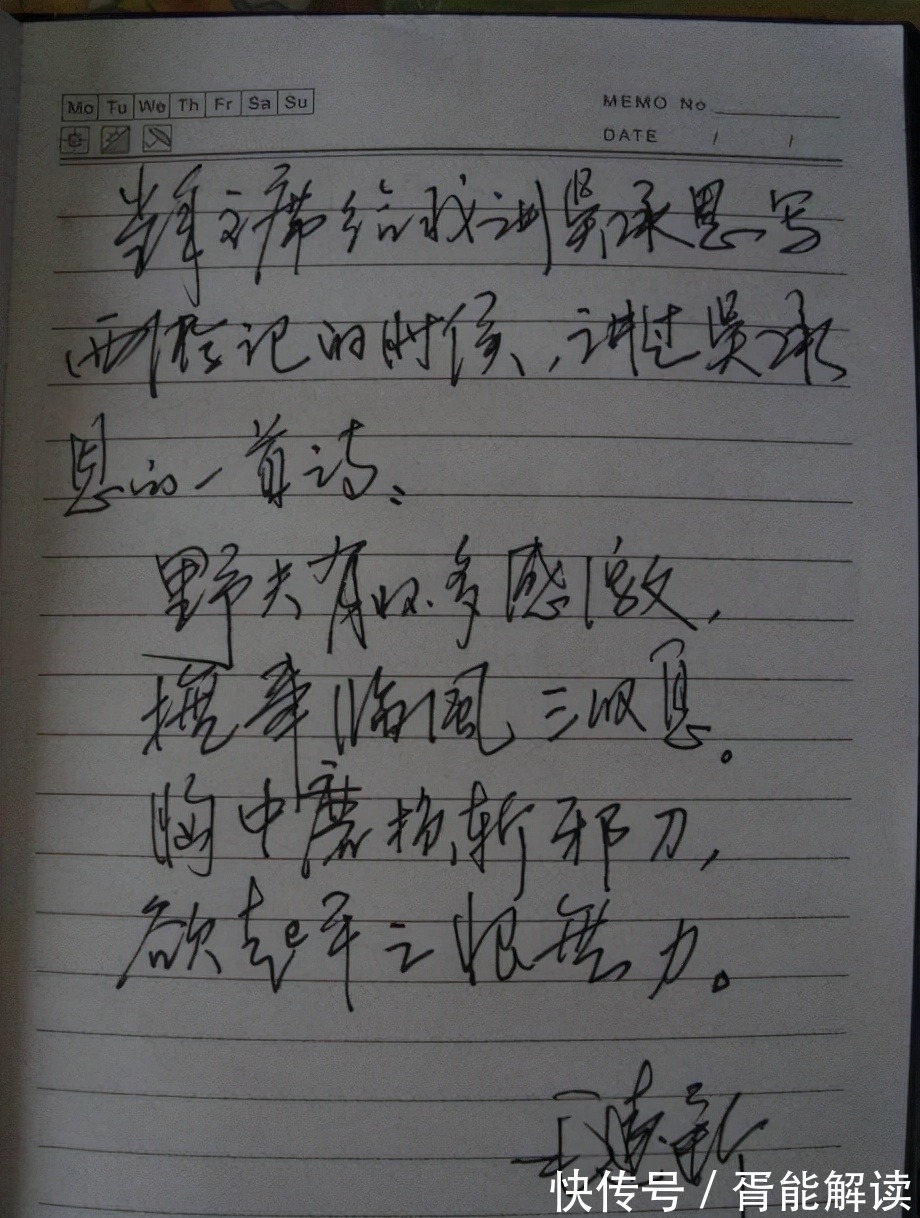 Mo Tu We Th Fr Sa Su
MEMO No
DATE / /
当年主席给我讲吴承恩写
西游记的时候、讲过吴承
恩的一首诗:
野夫有怀多感激,
撫事临風三叹息。
胸中磨损斩邪刀,
欲起平之恨無力。
快传号 / 胥能解读